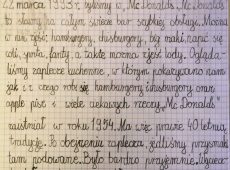 22 marca 1995 r. byliśmy w „Mc Donalds". Mc Donalds
to sławny na całym świecie bar szybkiej obsługi. Można
w nim zjeść hamburgery, chisburgery, big maki, napić się
coli, sprita, fanty, a także można zjeść lody. Ogląda-
liśmy zaplecze kuchenne, w którym pokazywano nam
jak i z czego robi się hamburgery, chisburgery oraz
apple pist i wiele ciekawych rzeczy. „Mc Donald"
zaistniał w roku 1954. Ma więc prawie 40 letnią
tradycję. Po obejrzeniu zaplecza, jedliśmy przysmaki
tam podawane. Było bardzo przyjemnie.